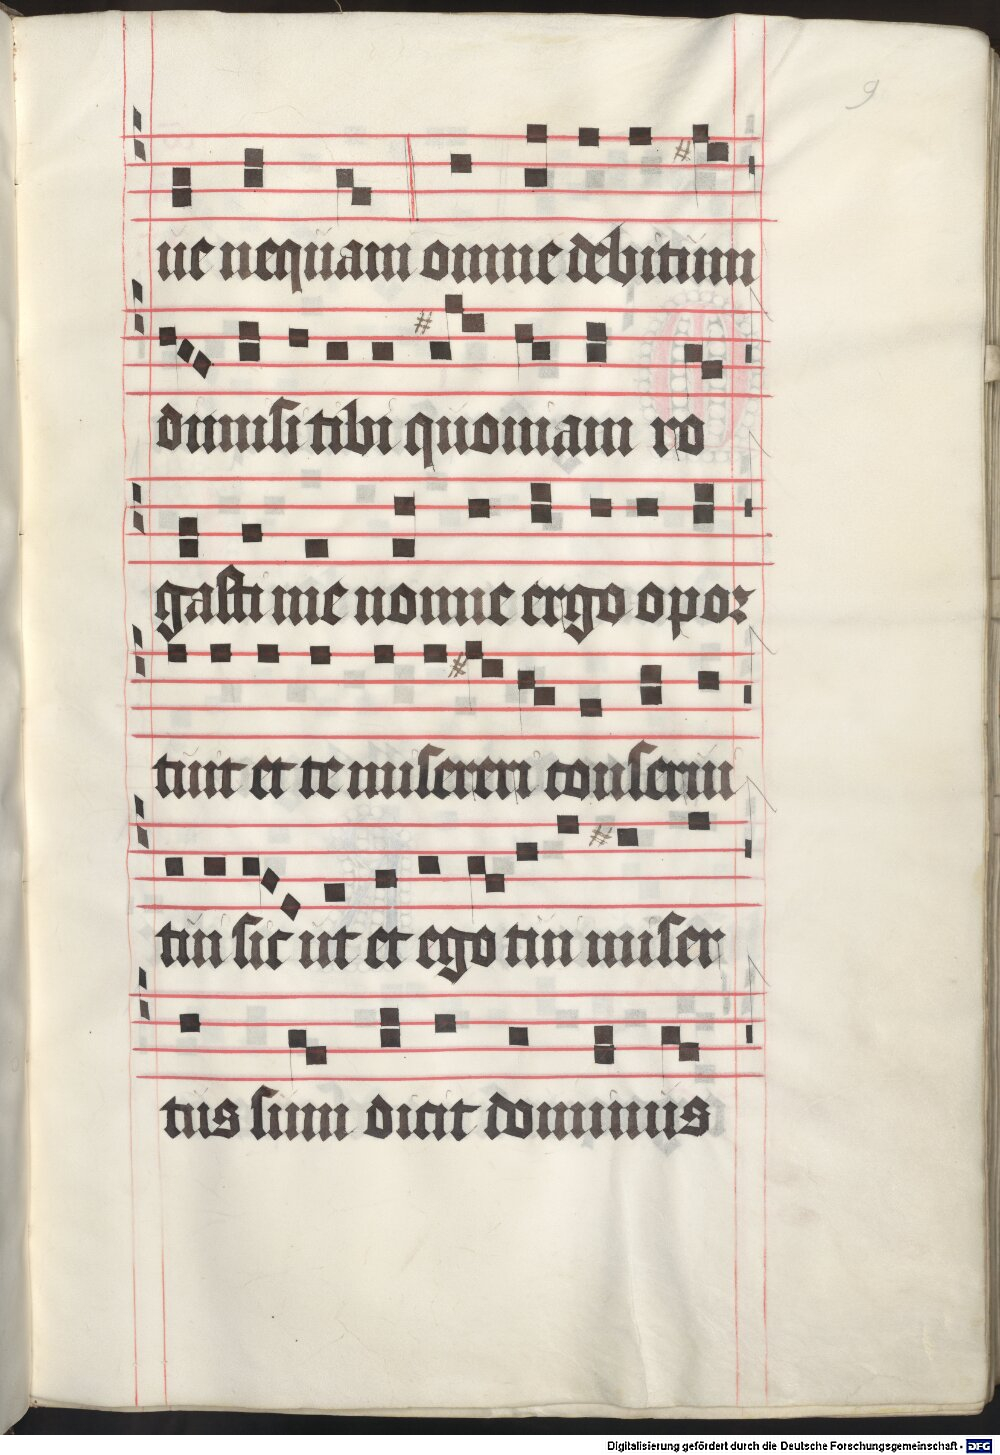 9
ue nequam omne debitum
dimisi tibi quoniam ro
gasti me nonne ergo opor
tuit et te misereri conserui
tui sic ut et ego tui miser
tus sum dicit dominus
Digitalisierung gefördert durch die Deutsche Forschungsgemeinschaft - DFG